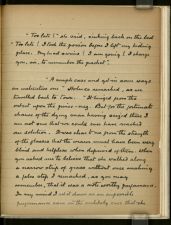 "Too late!" she said, sinking back on the bed
"Too late! I took the poison before I left my hiding
place. My head swims! I am going! I charge
you, sir, to remember the packet."
"A simple case and yet in some ways
an instructive one" Holmes remarked, as we
travelled back to Town. "It hinged from the
outset upon the pince-nez. But for the fortunate
chance of the dying man having seized these I
am not sure that we could ever have reached
our solution. It was clear to me from the strength
of the glasses that the wearer must have been very
blind and helpless when deprived of them. When
you asked me to believe that she walked along
a narrow strip of grass without once making
a false step I remarked, as you may
remember, that it was a noteworthy performance.
In my mind I set it down as an impossible
performance save in the unlikely case that she